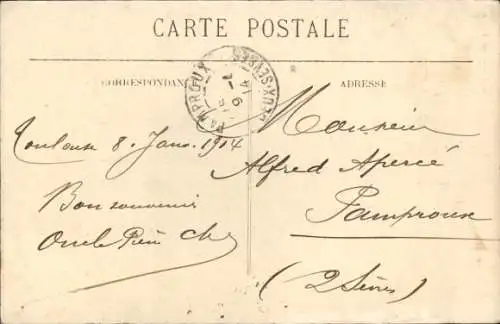 CARTE POSTALE
CORRESPONDANCE
ADRESSE
PAMPROUX
DEUX-SEVRES
9 - 1
14
Toulouse 8. Janv. 1914
Bon souvenir
Oncle Pierre
Monsieur
Alfred Apercé
Pamproux
(2 Sèvres)